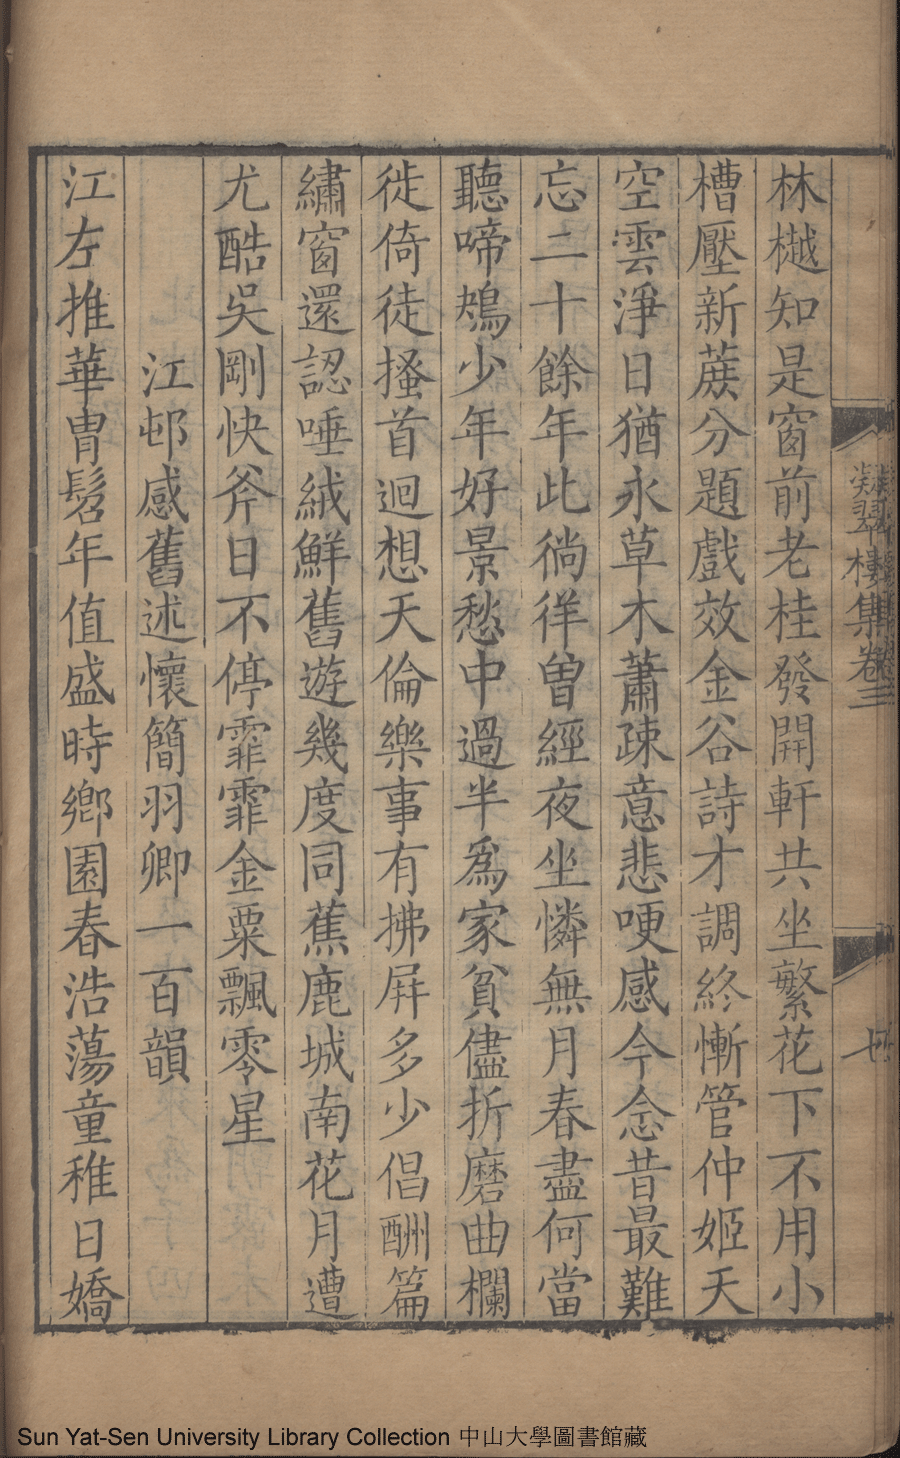 凝翠樓集卷三
七
林樾知是窗前老桂發開軒共坐繁花下不用小
槽壓新蔗分題戲效金谷詩才調終慚管仲姬天
空雲淨日猶永草木蕭疎意悲哽感今念昔最難
忘二十餘年此徜徉曾經夜坐憐無月春盡何當
聽啼鴂少年好景愁中過半爲家貧儘折磨曲欄
徙倚徒搔首迴想天倫樂事有拂屛多少倡酬篇
繡窗還認唾絨鮮舊遊幾度同蕉鹿城南花月遭
尤酷吳剛快斧日不停霏霏金粟飄零星
江邨感舊述懷簡羽卿一百韻
江左推華胄髫年值盛時鄉園春浩蕩童稚日嬌
Sun Yat-Sen University Library Collection 中山大學圖書館藏